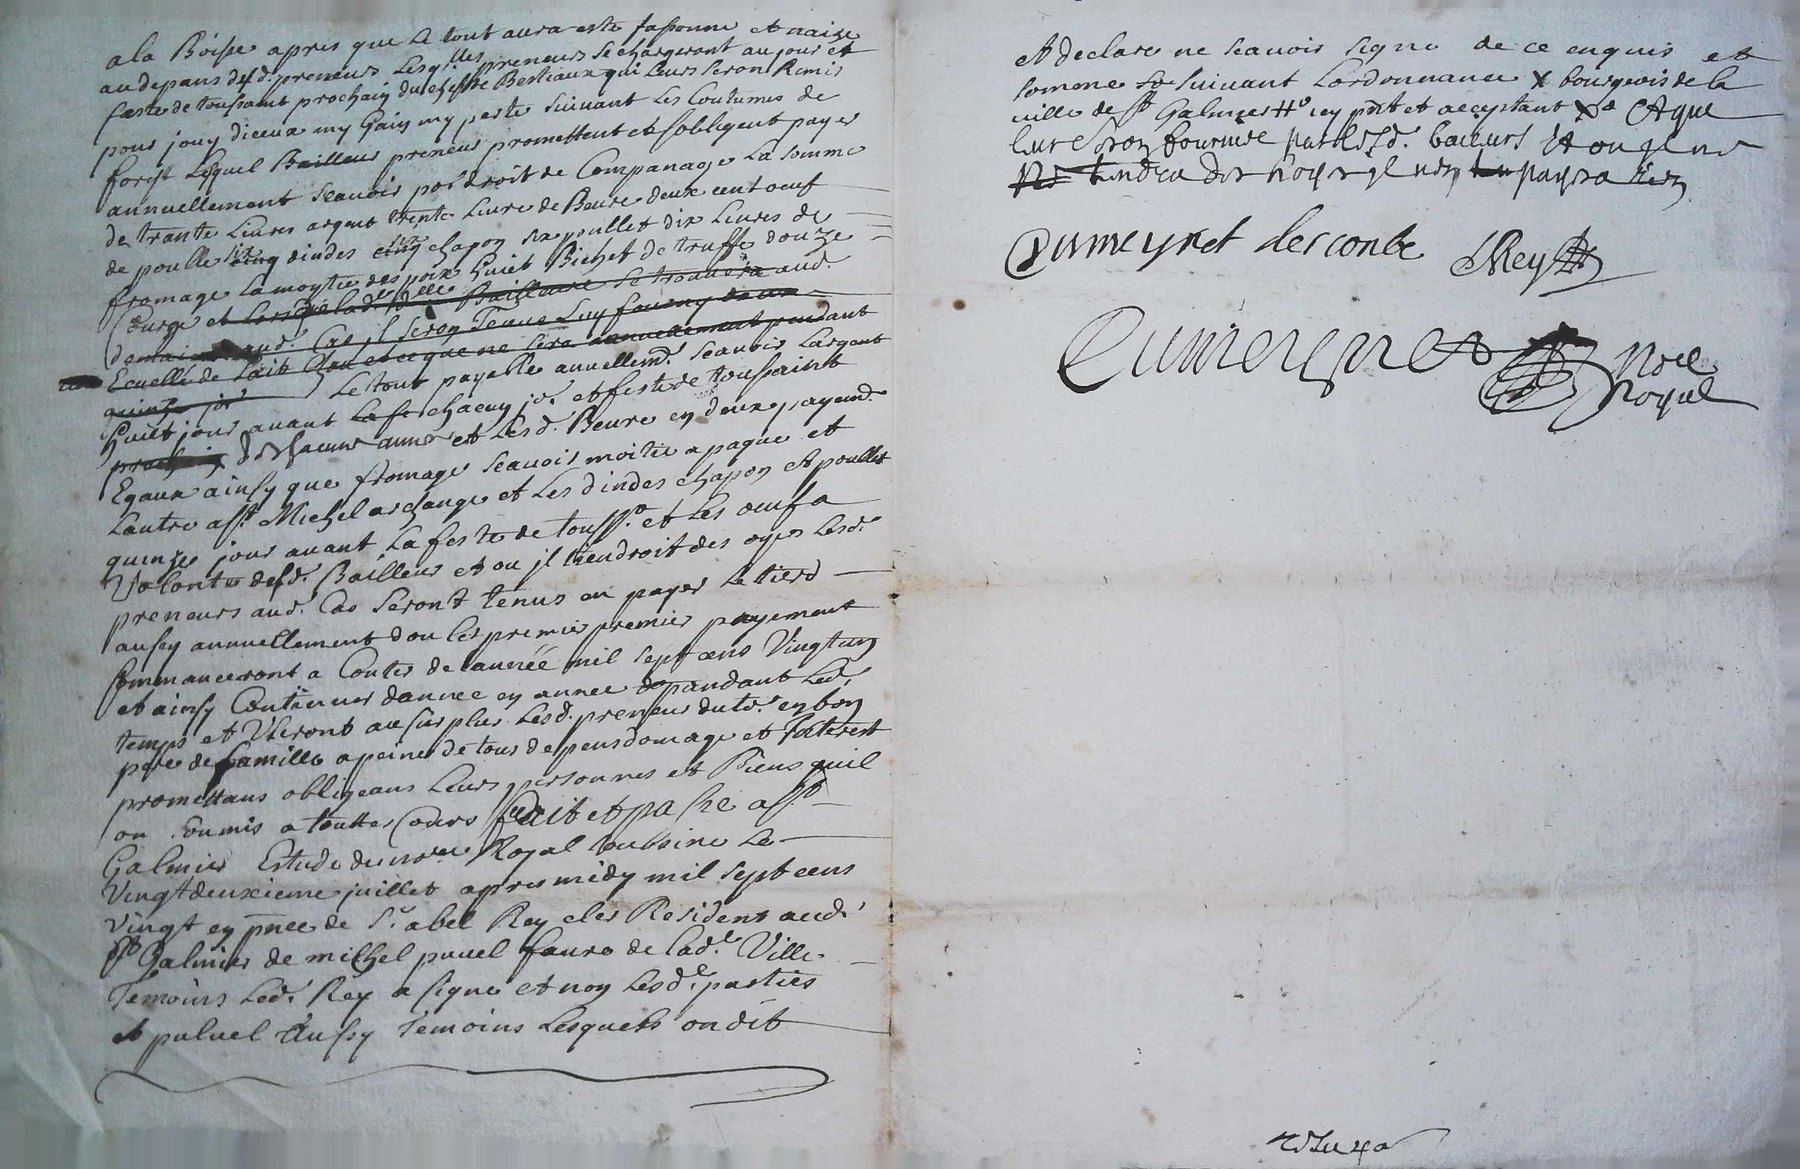 a la Boisse apres que le tout aura este fassonne et naize
au depans desd. preneurs Lesq.lles preneurs se chargeront au jour et
feste de toussaint prochain du cheptte Bestiaux qui Leurs seron Remis
pour jouy diceux my Gain my perte suivant Les Coutumes de
forest Lequel Bailleur preneur promettent et sobligent payer
annuellement scauoir por droit de Companage La somme
de trante Liures argent trente Liure de Beure deux cent oeuf
de poulle six cinq dindes six cinq chapon six poullet dix Liures de
fromage La moytie des poix huict Bichet de truffe douze
Courge et Lors que lad. d.lle Bailleure se trouuera aud.
aud. Cas seron Tenue Luy fourny deux
Ecuelle de Lait Chou et ce que ne sera annuellement pendant
quinze jor Le tout payable annuellemt. scauoir Largent
huict jour auant La fe chacun jor. et feste de toussaint
prochain de chacune année et Lesd. Beure en deux payemt.
Egaux ainsy que fromage scauoir moitie a paque et
Lautre a St. Michel archange et Les dindes chapon et poullet
quinze jour auant La feste de touss.t et Les oeuf a
Volonte desd. Bailleur et ou jl tiendroit des oyes Lesd.
preneurs aud. Cas seront tenus en payer Le tierd
aussy annuellement dou Les premier premier payement
Commanceront a Conter de Lannéé mil sept cens Vingt un
et ainsy Continuer dannee en annee pandant Led.
temps et Vseront au surplus Lesd. preneur dutt. en bon
pere de famille a peine de tous depens domage et Jnterest
promettans obligeans Leurs personnes et Biens quil
on soumis a touttes Cours fait et passe a St.
Galmier Estude du no.re Royal soussine Le
Vingt deuxieme juillet apres midy mil sept cens
vingt en pnce de Sr. abel Rey clerc Resident aud.
St. Galmier de michel puuel faure de Lad.e Ville
Temoins Led. Rey a signe et non Lesd. parties
et puluel aussy Temoins Lesquels on dit
et declare ne scauoir signe de ce enquis et
somme suivant Lordonnance X bourgeois de la
ville de St. Galmier # icy pnt et acceptant X et que
Leur seron fournie par lesd. bailleurs # ou jl ne
tendra des noyx jl nen payra rien
Dumeynet lescontte Rey
Dumeynet Nore
Royal